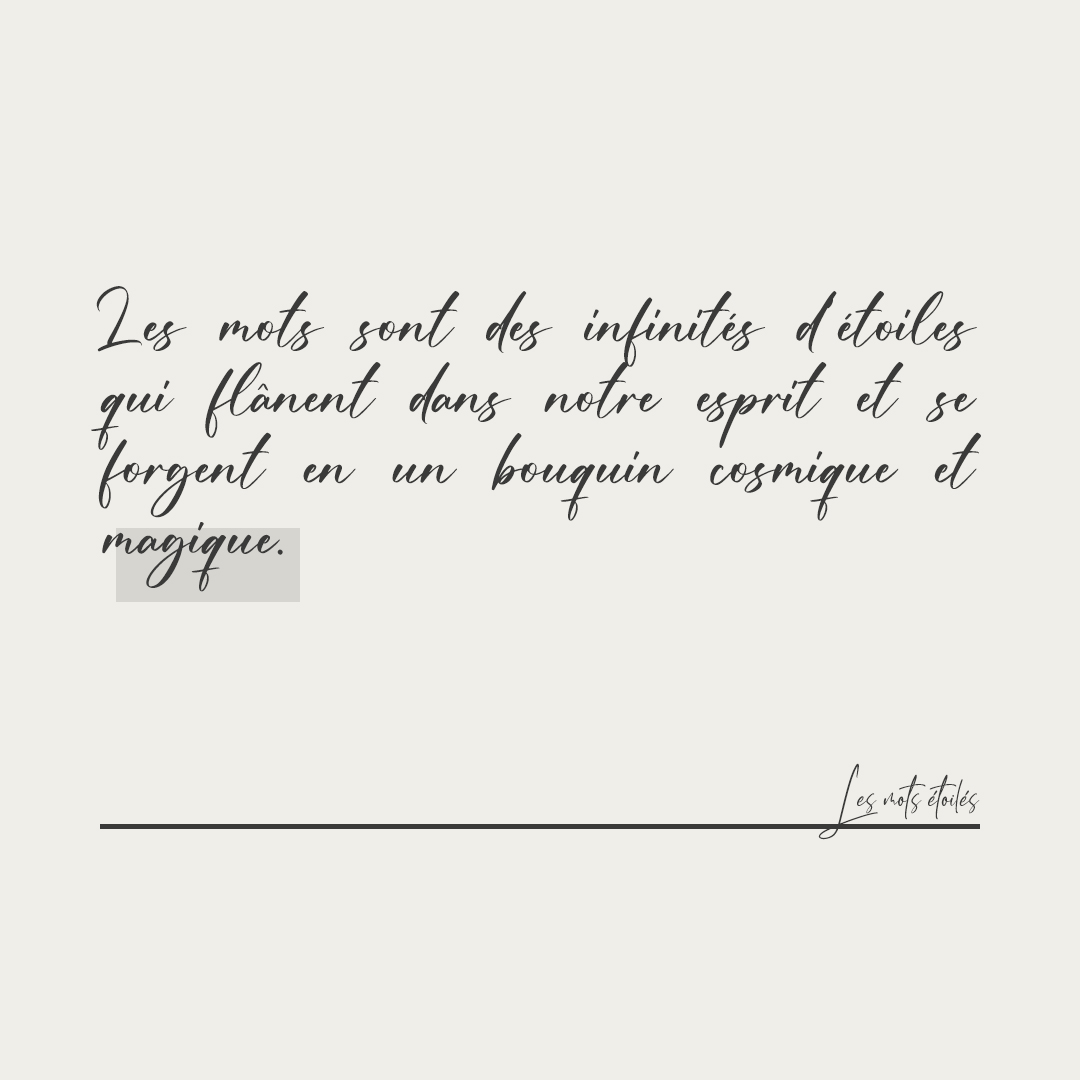 Les mots sont des infinités d'étoiles
qui flânent dans notre esprit et se
forgent en un bouquin cosmique et
magique.
Les mots étoilés